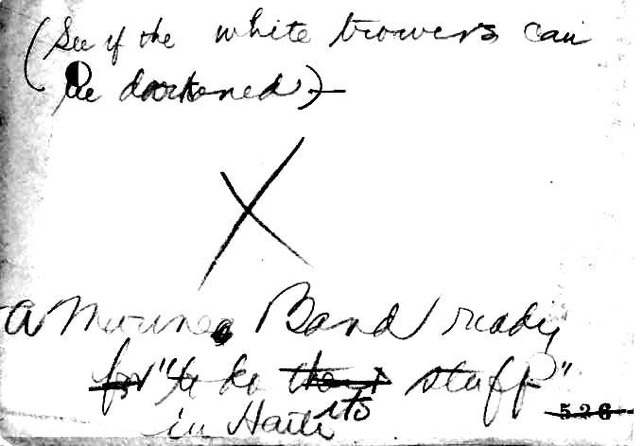 (See if the white trowers can
be darkened)
X
a Marine Band ready
for "to do their stuff"
its
in Haiti
526